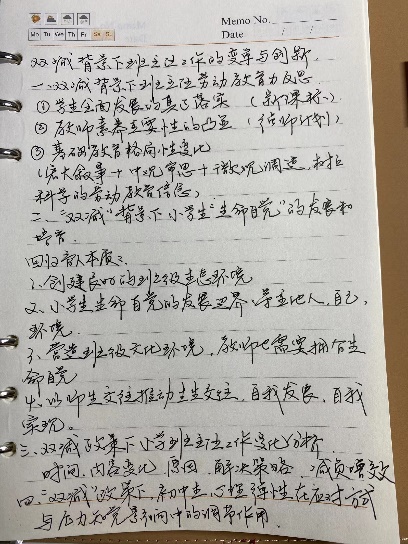 Memo No.
Mo Tu We Th Fr Sa Su
Date / /
双减背景下班主任工作的变革与创新
一、双减背景下班主任劳动教育力反思
①学生全面发展的真正落实（新课标）
②教师素养重要性的凸显（强师计划）
③基础教育格局性变化
（宏大叙事+中观审思+微观调适，树立
科学的劳动教育信念）
二、“双减”背景下小学生“生命自觉”的发展和
培育
四归本质：
1、创建良好的班级生态环境
2、小学生生命自觉的发展边界：学生他人，自己，
环境
3、营造班级文化环境，教师也需要拥有生
命自觉
4、以师生交往推动生生交往，自我发展，自我
实现。
三、双减政策下小学班主任工作变化分析
时间，内容变化，原因，解决策略，减负增效
四、“双减”政策下，初中生心理弹性在应对方式
与压力知觉影响中的调节作用